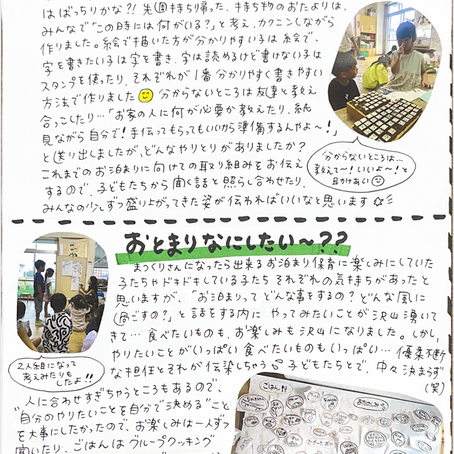 はばっちりかな?! 先週持ち帰った、持ち物のおたよりは、
みんなで"この時には何がいる?"と考え、カクニンしながら
作りました。絵で描いた方が分かりやすい子は絵で、
字を書きたい子は字を書き、字は読めるけど書けない子は
スタンプを使ったり、それぞれが1番分かりやすく書きやすい
方法で作りました 分からないところは友達と教え
合ったこしたり…「お家の人に何が必要か教えたり、紙
見ながら自分で!手伝ってもらってもいいから準備するんやよ〜!」
と送り出しましたが、どんなやりとりがありましたか?
これまでのお泊まりに向けての取り組みをお伝え
するので、子どもたちから聞く話と照らし合わせたり、
みんなの少しずつ盛り上がってきた姿が伝わればいいなと思います
分からないところは…
教えて〜!いいよ〜!と
助けあい
おとまりなにしたい〜??
まつぐりさんになったら出来るお泊まり保育に楽しみにしていた
子たちやドキドキしている子たち それぞれの気持ちがあったと
思いますが、「お泊まりって どんな事をするの?どんな風に
過ごすの?」と話をする内に やってみたいことが沢山湧いて
きて… 食べたいものも、お楽しみも沢山になりました。しかし
やりたいことがいっぱい 食べたいものもいっぱい… 優柔不断
な担任とそれが伝染しちゃう 子どもたちとで、中々決まらず
(笑)
2人組になって
考えみたりも
したよ!!
人に合わせすぎちゃうところもあるので、
"自分のやりたいことを自分で決める"こと
を大事にしたかったので、お楽しみは一人ずつ
聞いたり、ごはんはグループクッキング
ごはん!!